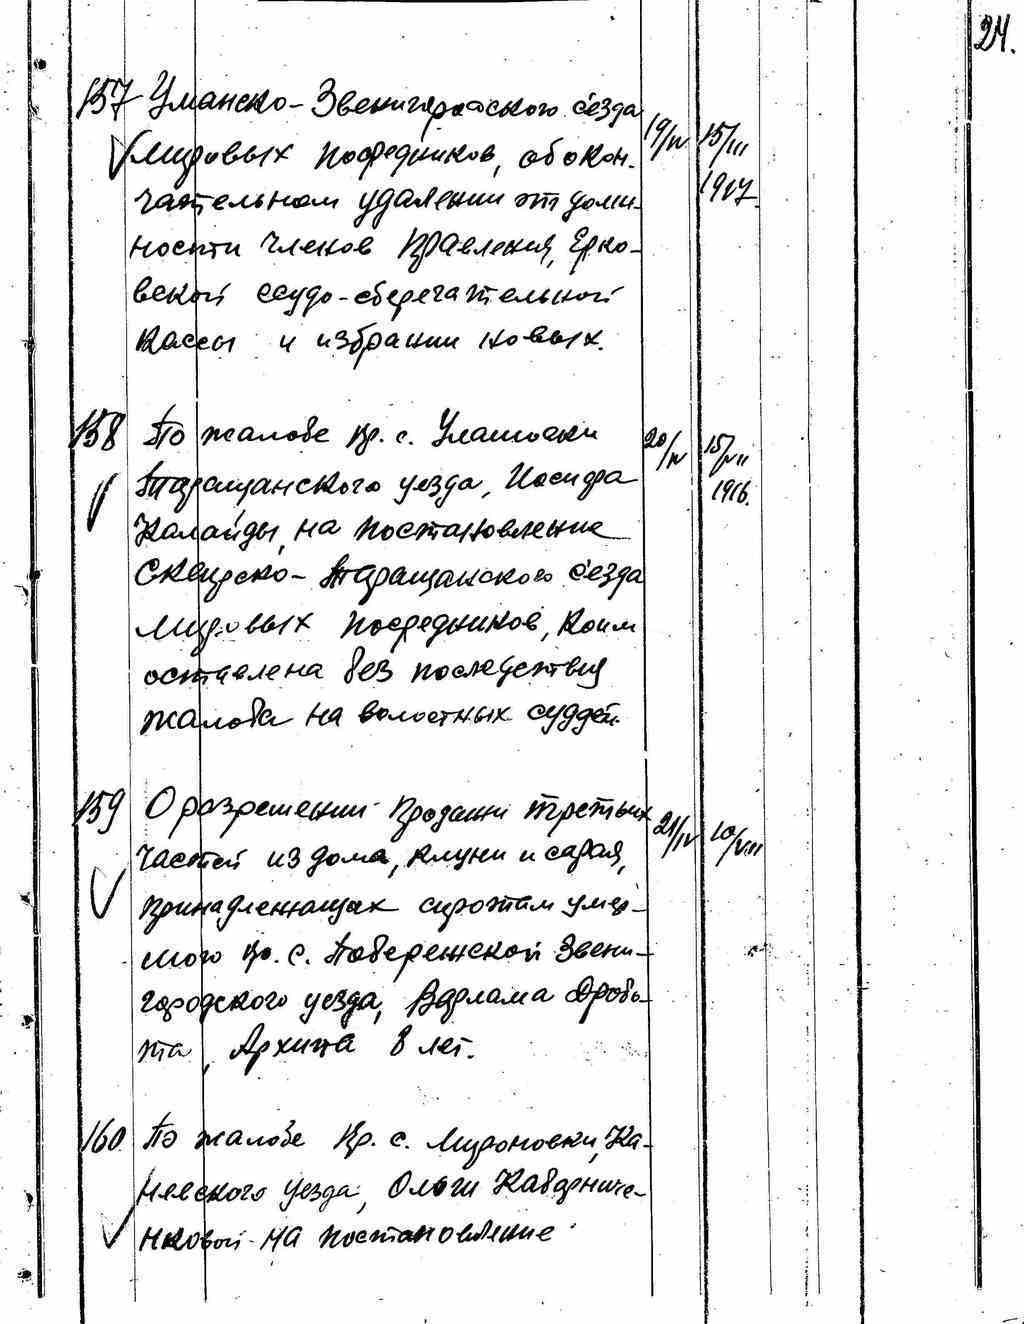 24.
157 Уманско-Звенигородского съезда 19/IV 15/III
мировых посредников, об окон-
1917.
чательном удалении от долж-
ности членов правления, Ерко-
вской ссудо-сберегательной
кассы и избрании новых.
158 По жалобе кр. с. Улашовки 20/IV 15/VII
1916.
Таращанского уезда, Иосифа
Калайды, на постановление
Сквирско-Таращанского съезда
мировых посредников, коим
оставлена без последствия
жалоба на волостных суддей.
159 О разрешении продажи третьих 21/IV 10/VIII
частей из дома, клуни и сарая,
принадлежащах сиротам умер-
шого кр. с. Побережской Звени-
городского уезда, Варлама Дробо-
та, Архипа 8 лет.
160 По жалобе кр. с. Мироновки, Ка-
невского уезда, Ольги
нковой на постановление